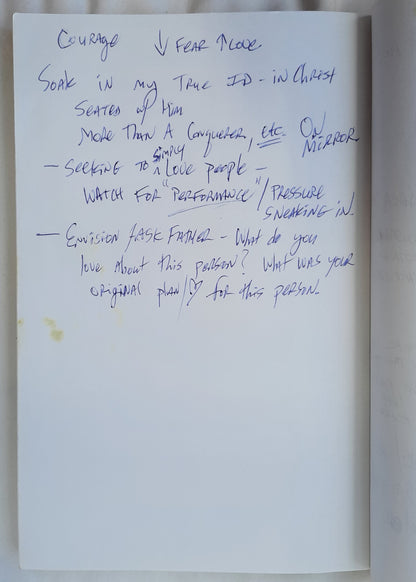 Courage ↓ Fear ↑ Love
Soak in my True ID - in Christ
Seated w/ Him
More Than A Conquerer, etc. On Mirror
- Seeking to simply love people -
Watch for "Performance" / Pressure
sneaking in.
- Envision / Ask Father - What do you
love about this person? What was your
original plan/♡ for this person.